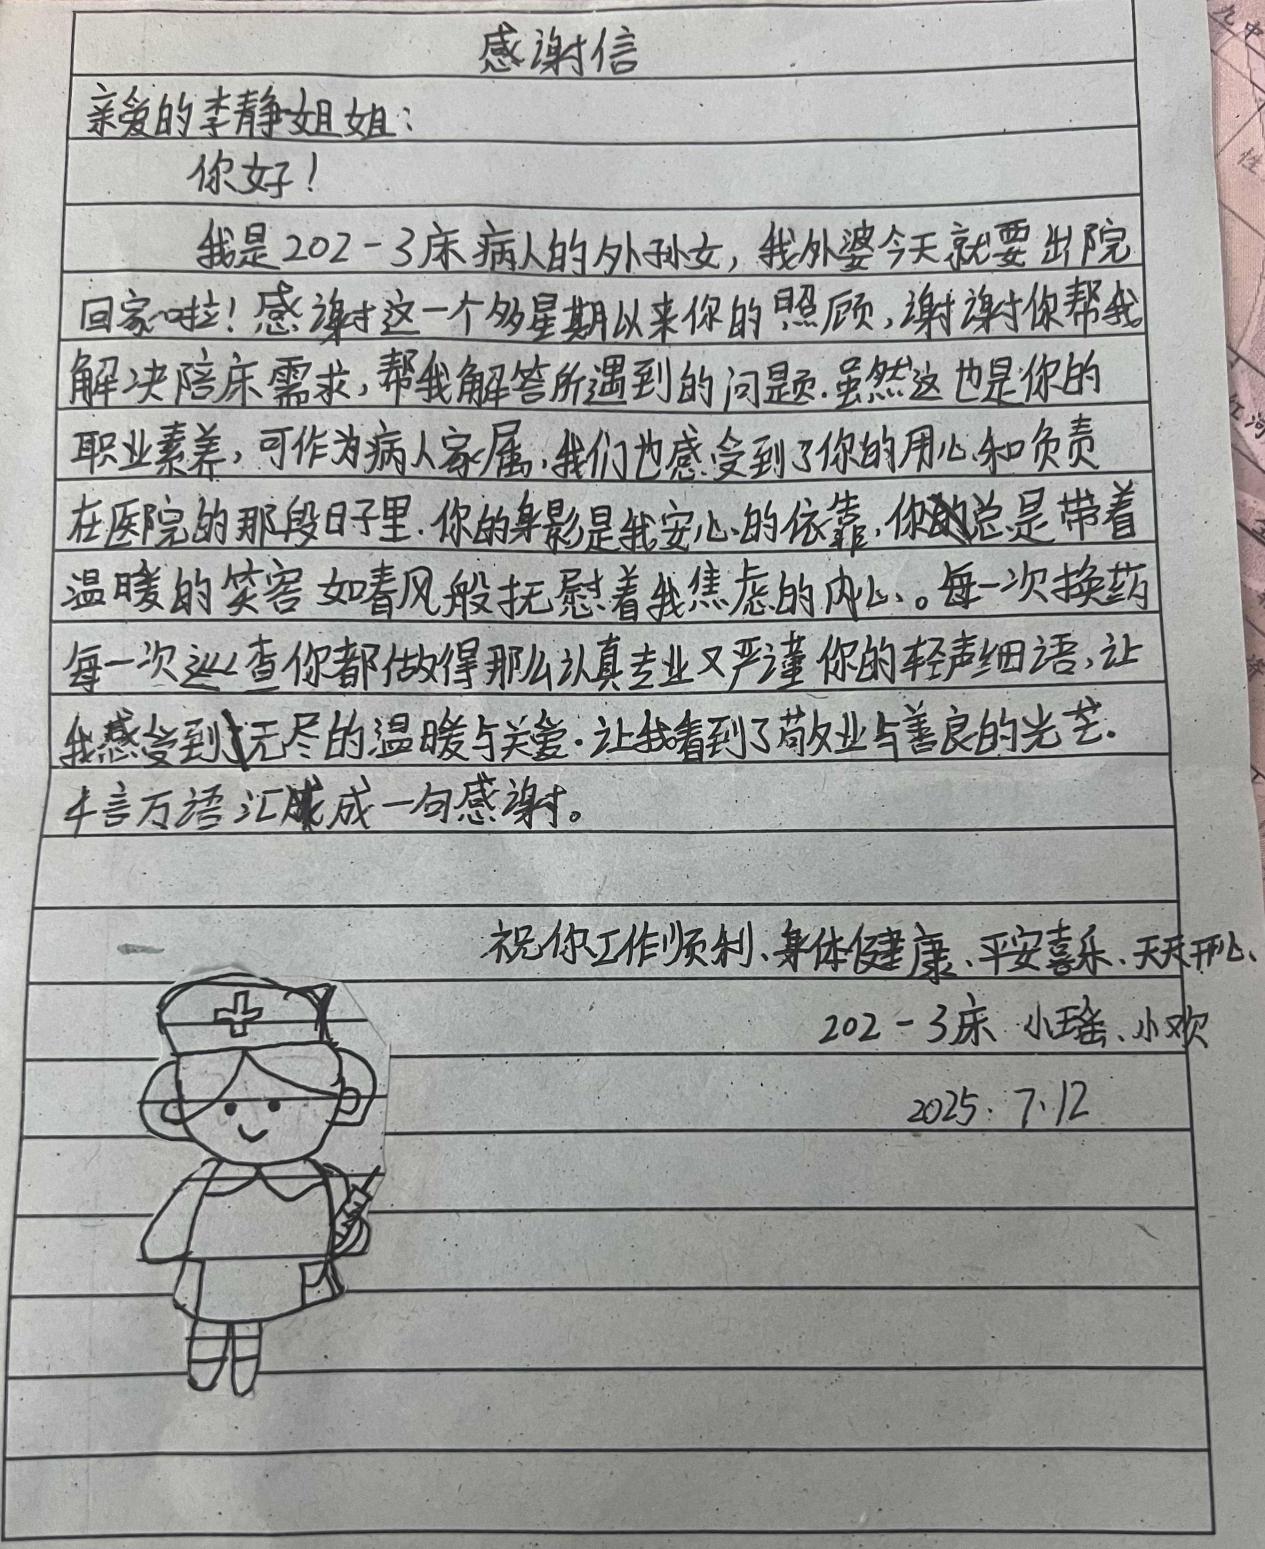 感谢信
亲爱的李静姐姐：
你好！
我是202-3床病人的外孙女，我外婆今天就要出院
回家啦！感谢这一个多星期以来你的照顾，谢谢你帮我
解决陪床需求，帮我解答所遇到的问题.虽然这也是你的
职业素养，可作为病人家属，我们也感受到了你的用心和负责
在医院的那段日子里.你的身影是我安心的依靠，你总是带着
温暖的笑容 如春风般抚慰着我焦虑的内心。每一次换药
每一次巡查你都做得那么认真专业又严谨 你的轻声细语，让
我感受到无尽的温暖与关爱.让我看到了敬业与善良的光芒.
千言万语汇成一句感谢。
祝你工作顺利、身体健康、平安喜乐、天天开心、
202-3床 小瑶、小欢
2025.7.12